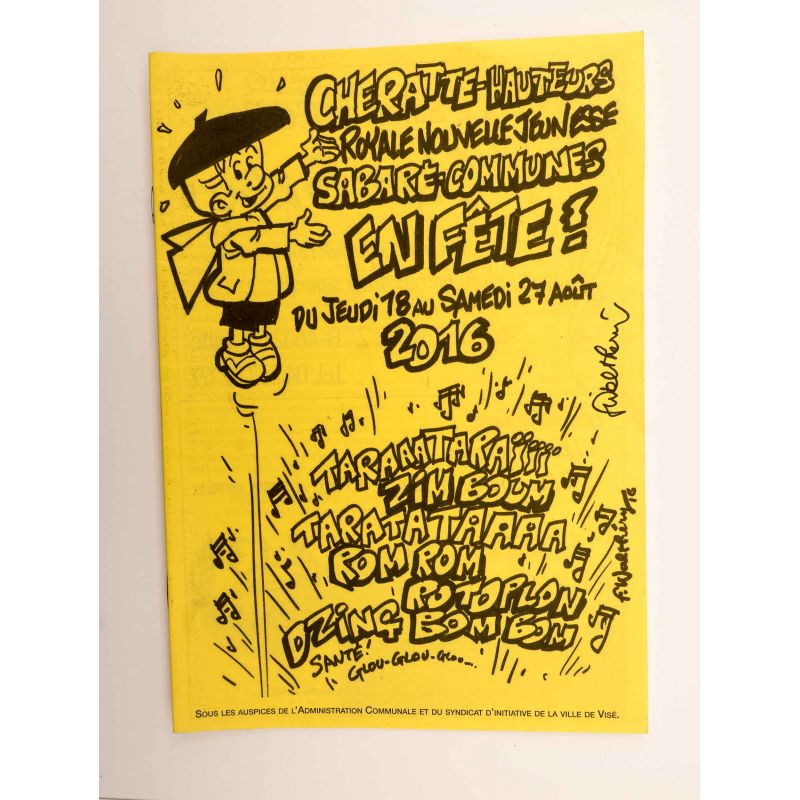 CHERATTE-HAUTEURS
ROYALE NOUVELLE JEUNESSE
SABARÉ-COMMUNES
EN FÊTE!
DU JEUDI 18 AU SAMEDI 27 AOÛT
2016
TARAAATARAÏÏÏÏ
ZIM BOUM
TARATATAAAA
ROM ROM
ROTOPLON
DZING BOM BOM
SANTÉ!
GLOU-GLOU-GLOU....
F. Walthéry 16
SOUS LES AUSPICES DE L'ADMINISTRATION COMMUNALE ET DU SYNDICAT D'INITIATIVE DE LA VILLE DE VISÉ.